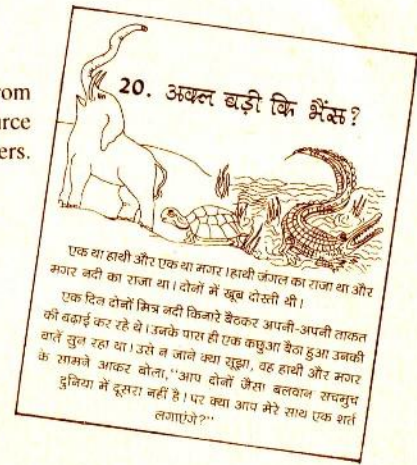 rom
urce
ers.
20. अक्ल बड़ी कि भैंस?
एक था हाथी और एक था मगर। हाथी जंगल का राजा था और
मगर नदी का राजा था। दोनों में खूब दोस्ती थी।
एक दिन दोनों मित्र नदी किनारे बैठकर अपनी-अपनी ताकत
की बढ़ाई कर रहे थे। उनके पास ही एक कछुआ बैठा हुआ उनकी
बातें सुन रहा था। उसे न जाने क्या सूझा, वह हाथी और मगर
के सामने आकर बोला, "आप दोनों जैसा बलवान सचमुच
दुनिया में दूसरा नहीं है। पर क्या आप मेरे साथ एक शर्त
लगाएंगे?"